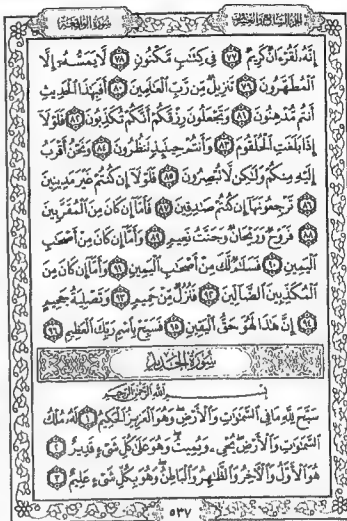 الجزء السابع والعشرون سورة الواقعة
إِنَّهُ لَقُرْءَانٌ كَرِيمٌ ﴿٧٧﴾ فِي كِتَٰبٍ مَّكْنُونٍ ﴿٧٨﴾ لَّا يَمَسُّهُۥٓ إِلَّا
ٱلْمُطَهَّرُونَ ﴿٧٩﴾ تَنزِيلٌ مِّن رَّبِّ ٱلْعَٰلَمِينَ ﴿٨٠﴾ أَفَبِهَٰذَا ٱلْحَدِيثِ
أَنتُم مُّدْهِنُونَ ﴿٨١﴾ وَتَجْعَلُونَ رِزْقَكُمْ أَنَّكُمْ تُكَذِّبُونَ ﴿٨٢﴾ فَلَوْلَآ
إِذَا بَلَغَتِ ٱلْحُلْقُومَ ﴿٨٣﴾ وَأَنتُمْ حِينَئِذٍ تَنظُرُونَ ﴿٨٤﴾ وَنَحْنُ أَقْرَبُ
إِلَيْهِ مِنكُمْ وَلَٰكِن لَّا تُبْصِرُونَ ﴿٨٥﴾ فَلَوْلَآ إِن كُنتُمْ غَيْرَ مَدِينِينَ
﴿٨٦﴾ تَرْجِعُونَهَآ إِن كُنتُمْ صَٰدِقِينَ ﴿٨٧﴾ فَأَمَّآ إِن كَانَ مِنَ ٱلْمُقَرَّبِينَ
﴿٨٨﴾ فَرَوْحٌ وَرَيْحَانٌ وَجَنَّتُ نَعِيمٍ ﴿٨٩﴾ وَأَمَّآ إِن كَانَ مِنْ أَصْحَٰبِ
ٱلْيَمِينِ ﴿٩٠﴾ فَسَلَٰمٌ لَّكَ مِنْ أَصْحَٰبِ ٱلْيَمِينِ ﴿٩١﴾ وَأَمَّآ إِن كَانَ مِنَ
ٱلْمُكَذِّبِينَ ٱلضَّآلِّينَ ﴿٩٢﴾ فَنُزُلٌ مِّنْ حَمِيمٍ ﴿٩٣﴾ وَتَصْلِيَةُ جَحِيمٍ
﴿٩٤﴾ إِنَّ هَٰذَا لَهُوَ حَقُّ ٱلْيَقِينِ ﴿٩٥﴾ فَسَبِّحْ بِٱسْمِ رَبِّكَ ٱلْعَظِيمِ ﴿٩٦﴾
سورة الحديد
بِسْمِ ٱللَّهِ ٱلرَّحْمَٰنِ ٱلرَّحِيمِ
سَبَّحَ لِلَّهِ مَا فِي ٱلسَّمَٰوَٰتِ وَٱلْأَرْضِ وَهُوَ ٱلْعَزِيزُ ٱلْحَكِيمُ ﴿١﴾ لَهُۥ مُلْكُ
ٱلسَّمَٰوَٰتِ وَٱلْأَرْضِ يُحْيِۦ وَيُمِيتُ وَهُوَ عَلَىٰ كُلِّ شَيْءٍ قَدِيرٌ ﴿٢﴾
هُوَ ٱلْأَوَّلُ وَٱلْءَاخِرُ وَٱلظَّٰهِرُ وَٱلْبَاطِنُ وَهُوَ بِكُلِّ شَيْءٍ عَلِيمٌ ﴿٣﴾
٥٣٧